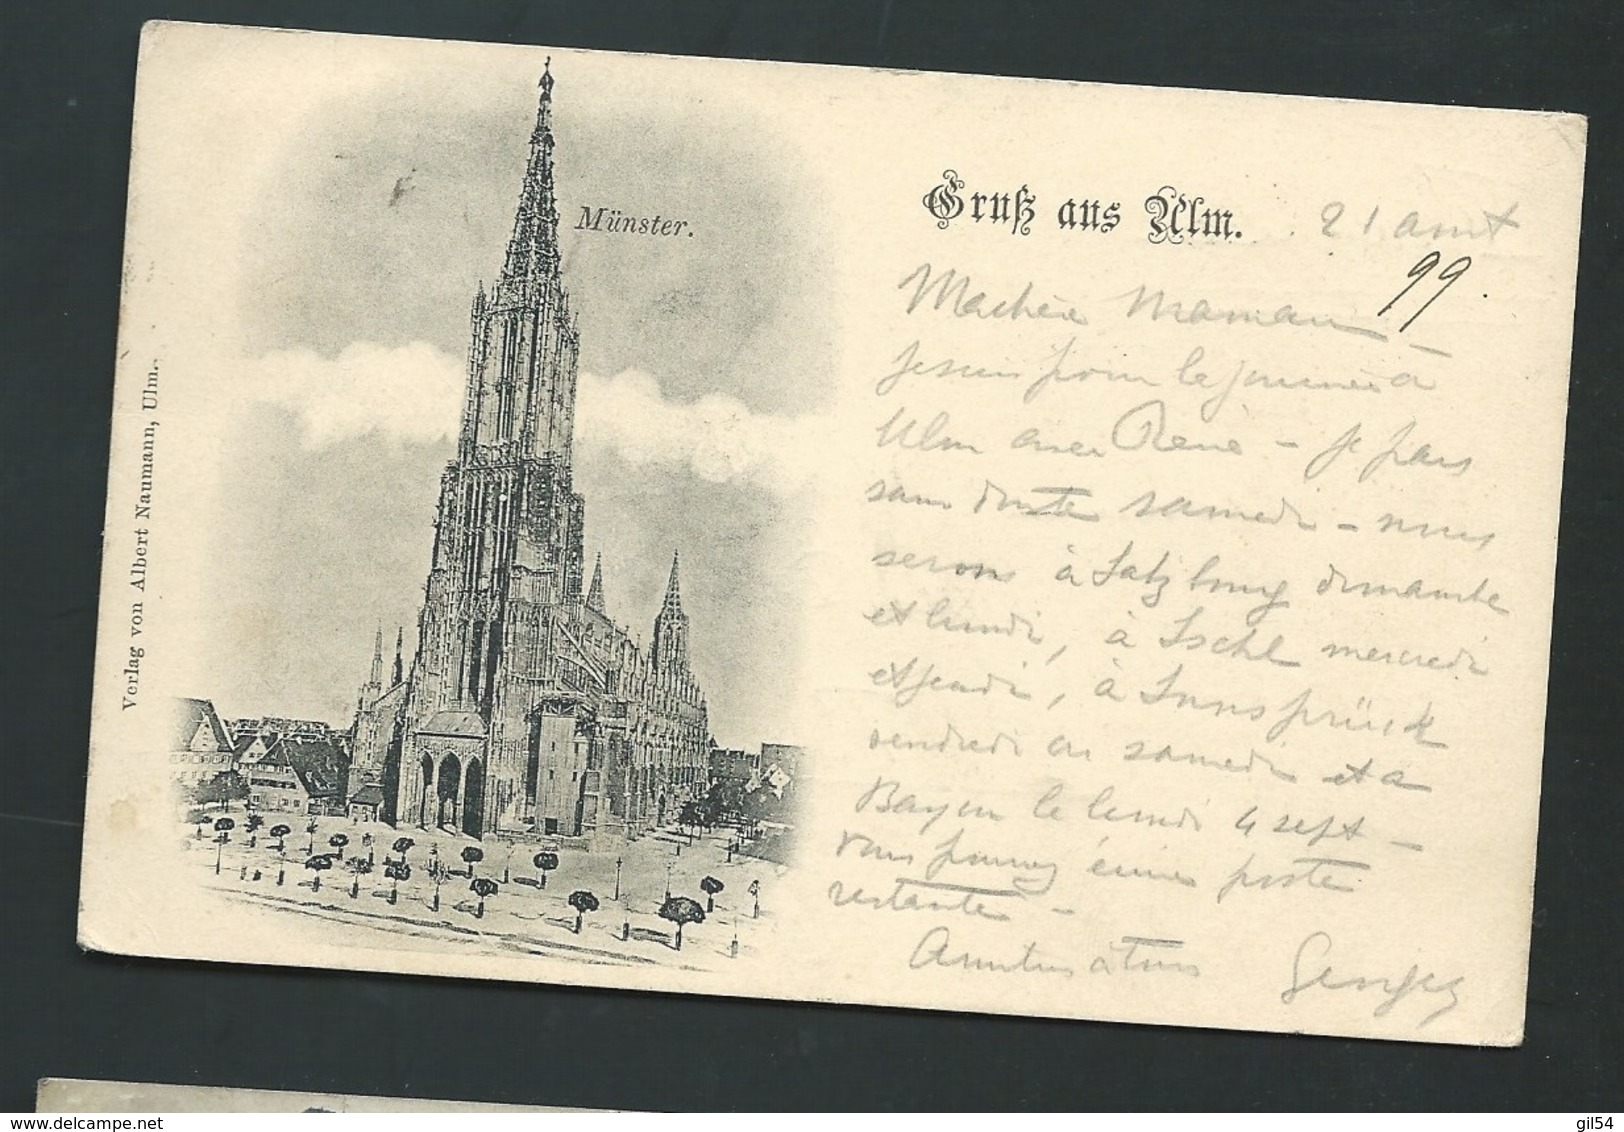 Gruß aus Ulm. 21 août
99.
Münster.
Verlag von Albert Naumann, Ulm.
Ma chère Maman –
je suis pour la journée à
Ulm avec René – je pars
sans doute samedi – nous
serons à Salzburg dimanche
et lundi, à Ischl mercredi
et jeudi, à Innsprück
vendredi ou samedi et à
Bayon le lundi 4 sept –
vous pouvez écrire poste
restante –
Amitiés à tous Georges
delcampe.net
gil54